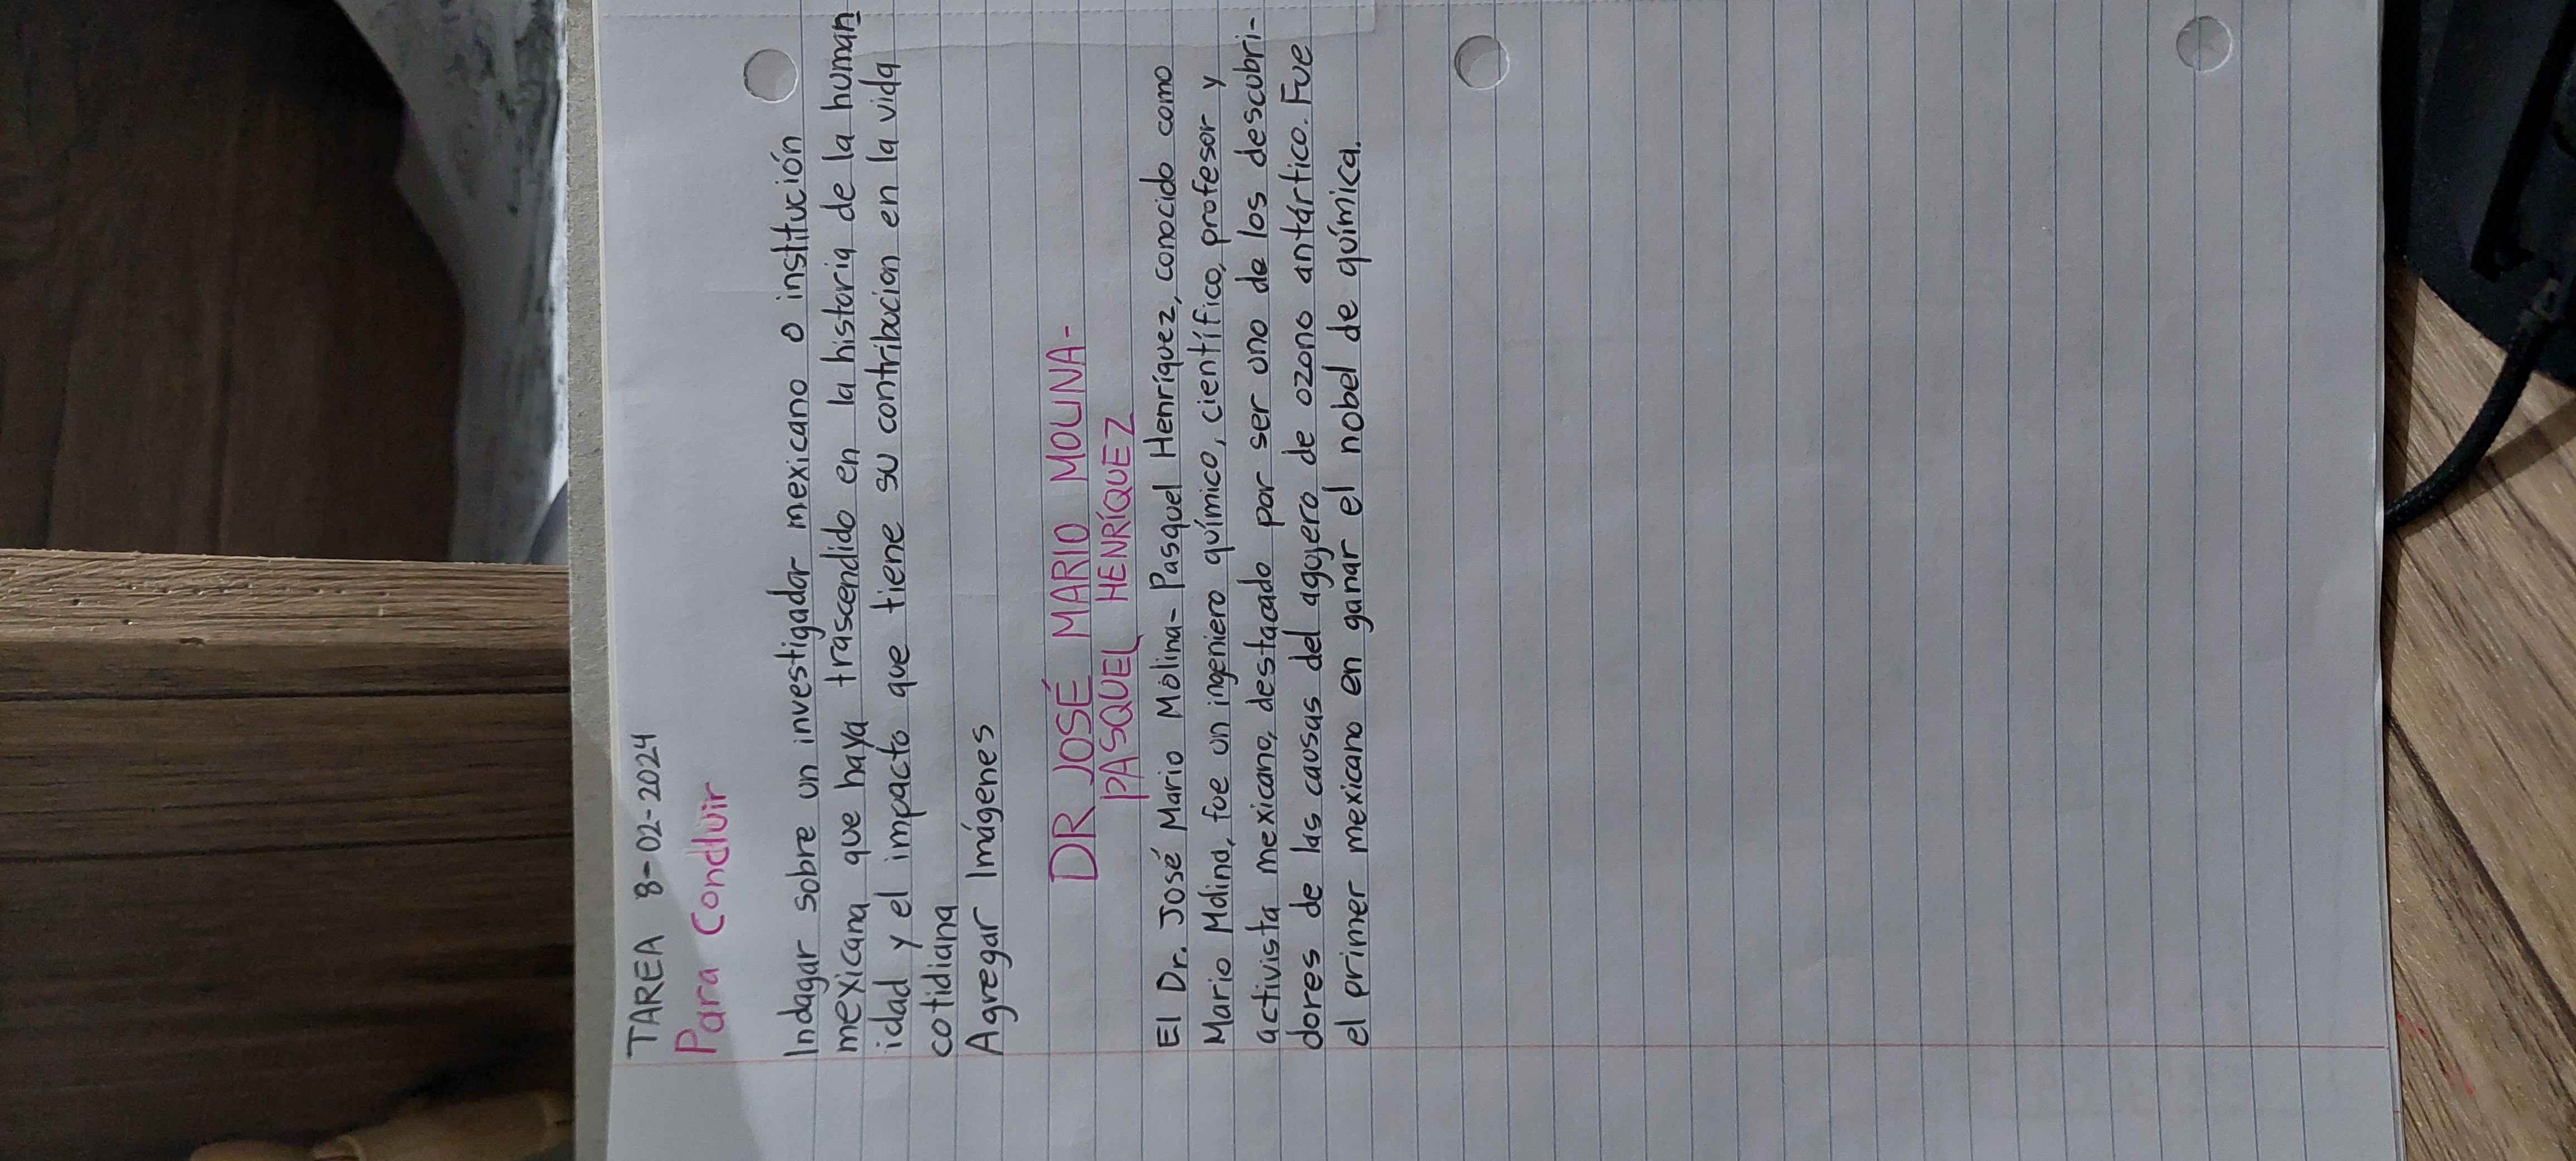 TAREA 8-02-2024
Para Concluir
Indagar sobre un investigador mexicano o institución
mexicana que haya trascendido en la historia de la human
idad y el impacto que tiene su contribucion en la vida
cotidiana
Agregar Imágenes
DR JOSÉ MARIO MOLINA-
PASQUEL HENRÍQUEZ
El Dr. José Mario Molina-Pasquel Henríquez, conocido como
Mario Molina, fue un ingeniero químico, científico, profesor y
activista mexicano, destacado por ser uno de los descubri-
dores de las causas del agujero de ozono antártico. Fue
el primer mexicano en ganar el nobel de química.